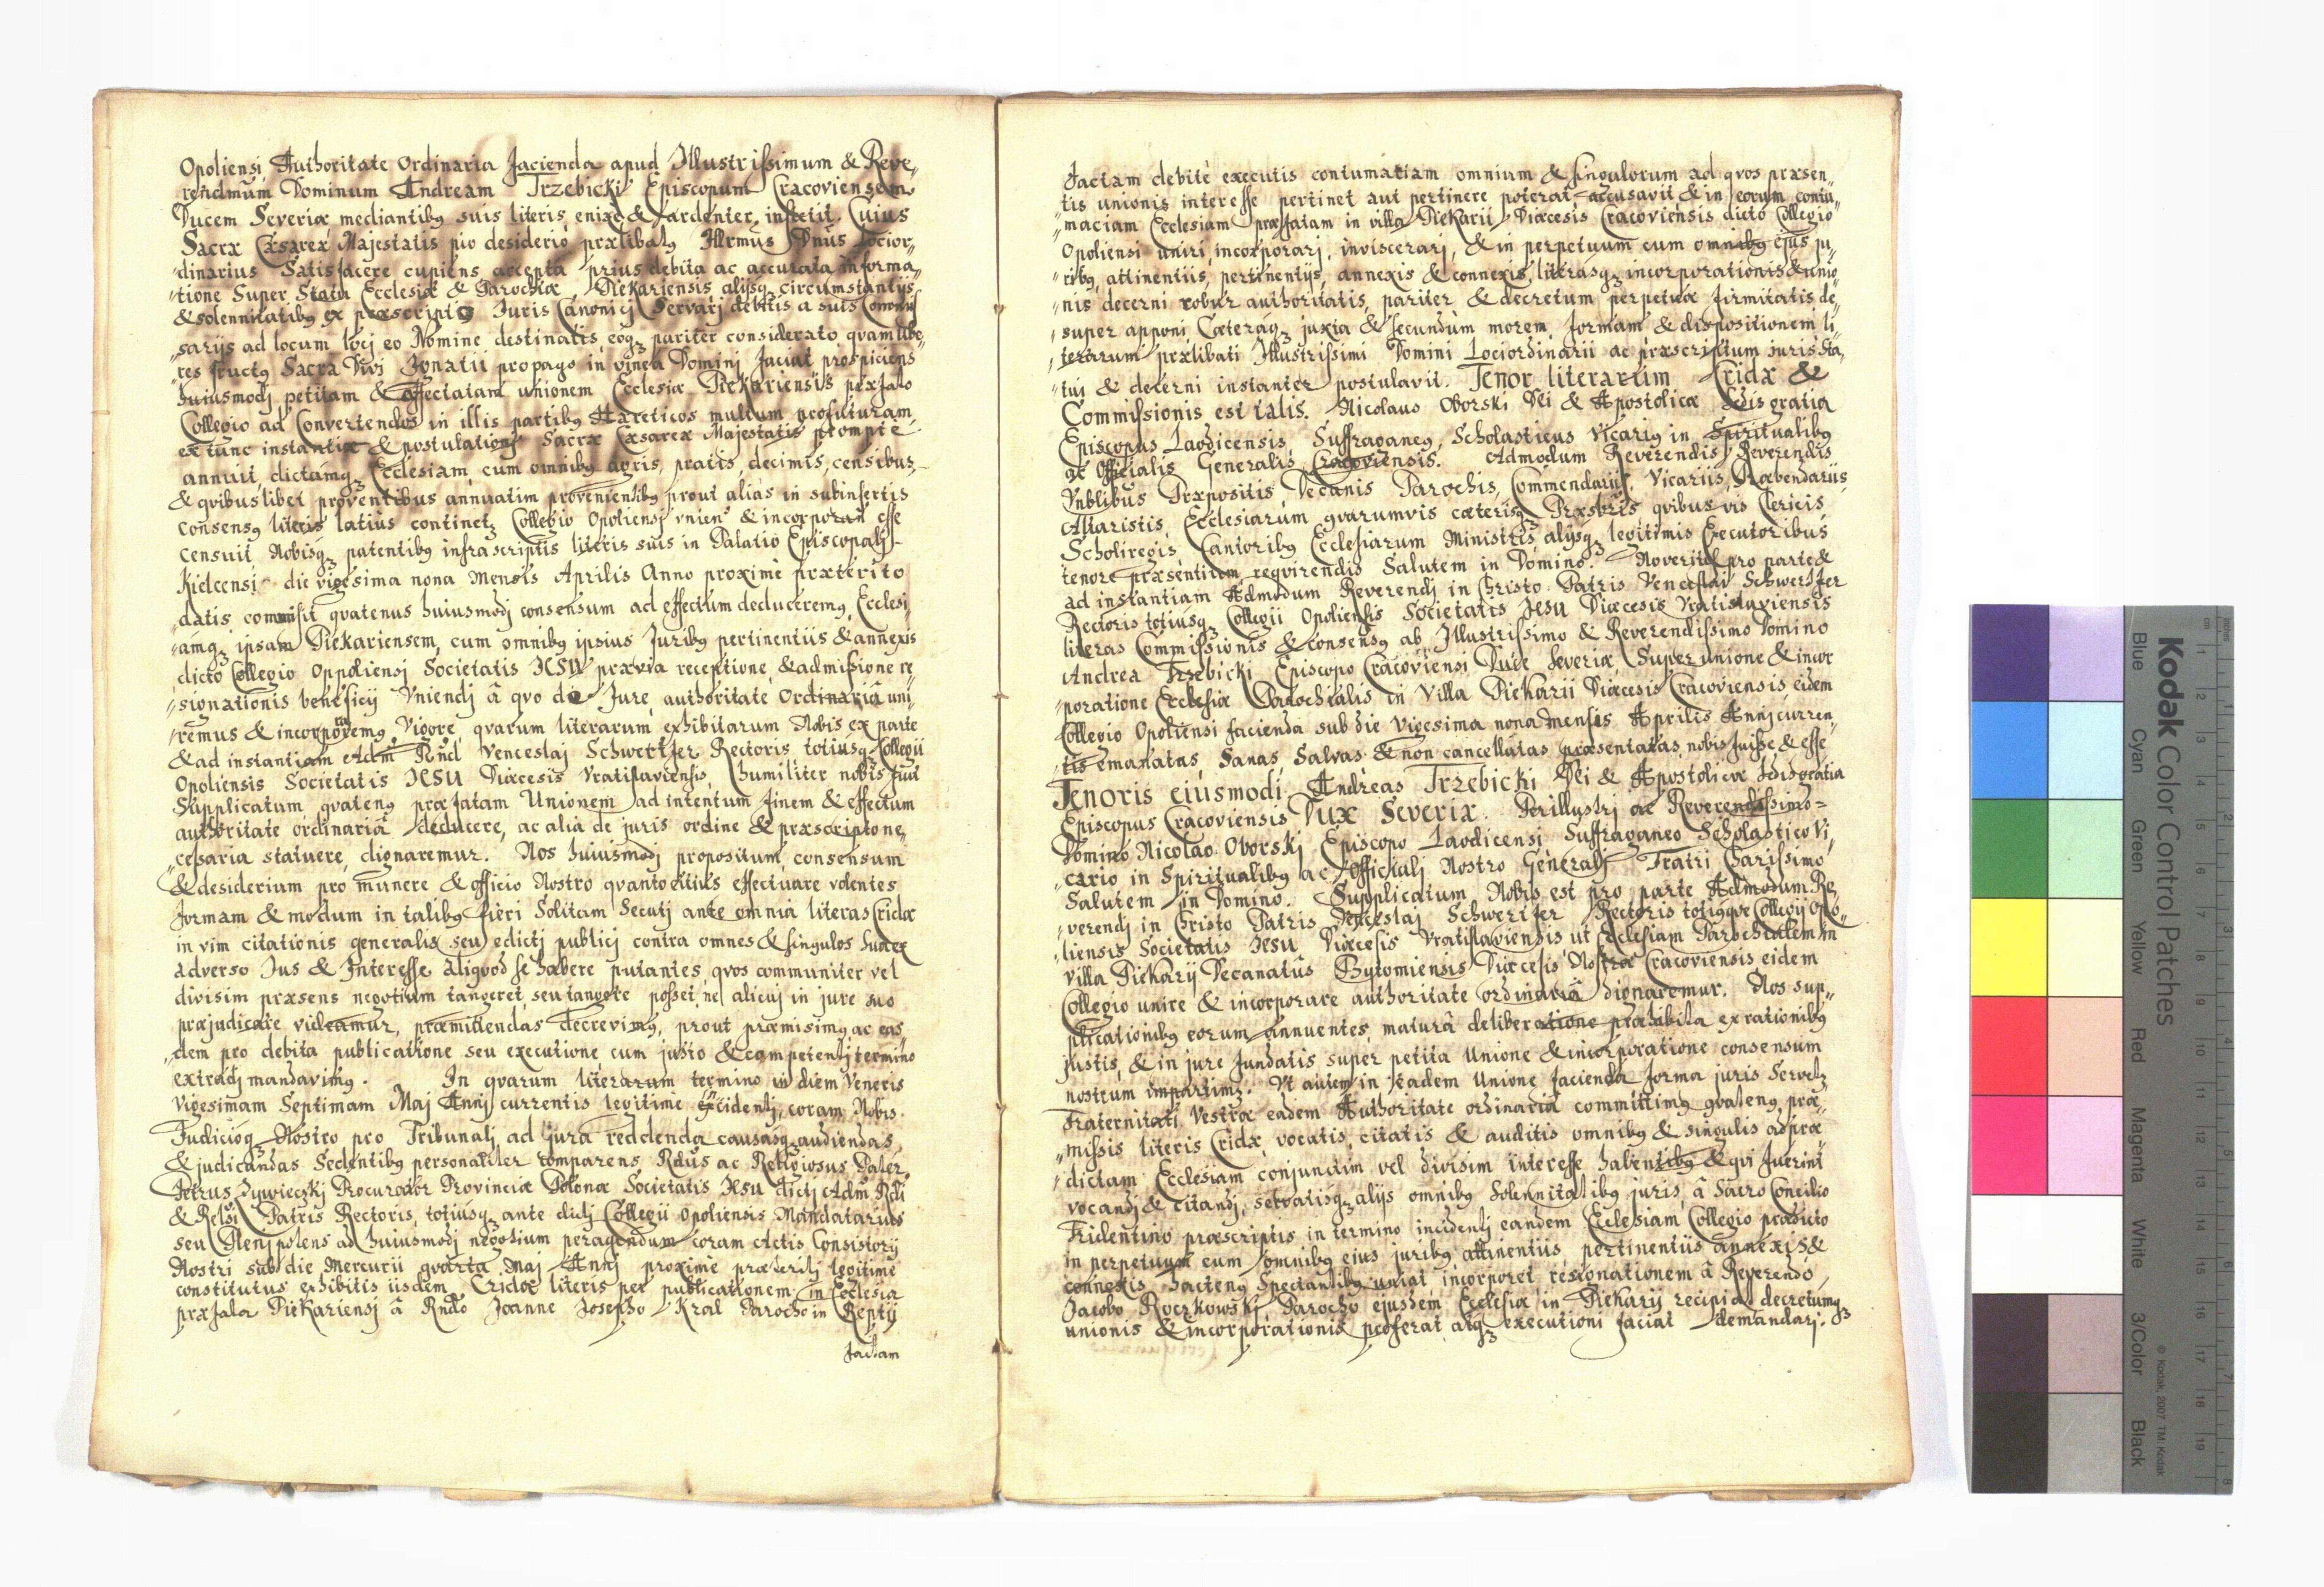 Opoliensi Authoritate Ordinaria facienda apud Illustrissimum & Reve„
rendmum Dominum Andream Trzebicki Episcopum Cracoviensem
Ducem Severiæ mediantibꝯ suis literis enixe & ardenter institit. Cuius
Sacræ Cæsareæ Majestatis pio desiderio prælibatꝯ Illrmus Dnus Locior„
„dinarius Satisfacere cupiens accepta prius debita ac accurata informa„
„tione Super Statu Ecclesiæ & Parochiæ Piekariensis alijsqꝫ circumstantijs
& solennitatibꝯ ex præscripto Iuris Canonicj Servarj debitis a suis Commis
„sarijs ad locum locj eo Nomine destinatis eoqꝫ pariter considerato qvam ube„
„res fructꝯ Sacra Divi Ignatii propago in vinea Dominj faciat prospiciens
huiusmodj petitam & affectatam unionem Ecclesiæ Piekariensis præfato
Collegio ad Convertendos in illis partibꝯ Hæreticos multum profuturam
ex tunc instantiæ & postulationj Sacræ Cæsareæ Majestatis prompte
annuit, dictamqꝫ Ecclesiam cum omnibꝯ agris, pratis, decimis, censibus,
& qvibuslibet proventibus annuatim provenientibꝯ prout alias in subinsertis
Consensꝯ literis latius continetꝫ Collegio Opoliensj vnien & incorporan esse
censuit Nobisqꝫ patentibꝯ infrascriptis literis suis in Palatio Episcopalj
Kielcensi die vigesima nona Mensis Aprilis Anno proxime præterito
datis commisit qvatenus huiusmodj consensum ad effectum deduceremꝯ, Ecclesi„
„amqꝫ ipsam Piekariensem, cum omnibꝯ ipsius Juribꝯ pertinentiis & annexis
dicto Collegio Oppoliensj Societatis IESU prævia receptione & admissione re„
„signationis beneficij Vniendj â qvo de Jure authoritate Ordinariâ uni„
„remus & incorporaremꝯ. Vigore qvarum literarum exhibitarum Nobis ex parte
& ad instantiam Adm Rnd Venceslaj Schwertfer Rectoris totiusqꝫ Collegii
Opoliensis Societatis IESU Diæcesis Vratislaviensis, humiliter nobis fuit
Supplicatum qvatenꝯ præfatam Unionem ad intentum finem & effectum
authoritate ordinariâ deducere, ac alia de juris ordine & præscripto ne„
„cessaria statuere dignaremur. Nos huiusmodj propositum consensum
& desiderium pro munere & officio Nostro qvanto citius effectuare volentes
formam & modum in talibꝯ fieri Solitam Secutj ante omnia literas Cridæ
in vim citationis generalis seu edictj publicj contra omnes & singulos
adverso Ius & Interesse aliqvod se habere putantes qvos communiter vel
divisim præsens negotium tangeret seu tangere posset, ne alicuj in jure suo
præjudicare videamur, præmittendas decrevimꝯ, prout præmisimꝯ ac eas„
„dem pro debita publicatione seu executione cum justo & competentj termino
extradj mandavimꝯ. In qvarum literarum termino in diem Veneris
Vigesimam Septimam Maj Annj currentis legitime incidentj, coram Nobis
Iudicioqꝫ Nostro pro Tribunalj ad jura reddenda causasqꝫ audiendas
& judicandas Sedentibꝯ personaliter comparens Rdus ac Religiosus Pater
Petrus Zywieczkj Procurator Provinciæ Polonæ Societatis IESU dictj Adm Rdi
& Relsi Patris Rectoris, totiusqꝫ ante dictj Collegii Opoliensis Mandatarius
seu Plenipotens ad huiusmodj negotium peragendum coram Actis Consistorij
Nostri sub die Mercurii qvarta Maj Annj proxime præteritj legitime
constitutus exhibitis iisdem Cridæ literis per publicationem in Ecclesia
præfata Piekariensj â Rndo Joanne Josepho Kral Parocho in Reptij
factam
factam debitè executis contumatiam omnium & singulorum ad qvos præsen„
„tis unionis interesse pertinet aut pertinere poterat accusavit & in eorum contu„
„maciam Ecclesiam præfatam in villa Piekarii Diæcesis Cracoviensis dicto Collegio
Opoliensi uniri, incorporarj, inviscerarj, & in perpetuum cum omnibꝯ ejus ju„
„ribꝯ, attinentiis, pertinentijs, annexis & connexis, literasqꝫ incorporationis & unio„
„nis decerni robur authoritatis, pariter & decretum perpetuæ firmitatis de„
„super apponi Cæteraqꝫ juxta & secundùm morem formam & dispositionem li„
„terarum prælibati Illustrissimi Domini Lociordinarii ac præscriptum juris Sta„
„tui & decerni instanter postulavit. Tenor literarum Cridæ &
Commissionis est talis. Nicolaus Oborski Dei & Apostolicæ Sedis gratia
Episcopus Laodicensis Suffraganeꝯ, Scholasticus Vicariꝯ in Spiritualibꝯ
ac Officialis Generalis Cracoviensis. Admodum Reverendis Reverendis
Vnblibus Præpositis Decanis Parochis, Commendariis, Vicariis, Præbendariis,
Altaristis Ecclesiarum qvarumvis cæterisqꝫ Præsbris qvibusvis Clericis,
Scholiregis Cantoribꝯ Ecclesiarum Ministris alijsqꝫ legitimis Executoribus
tenore præsentium reqvirendis Salutem in Domino. Noveritis pro parte &
ad instantiam Admodum Reverendj in Christo Patris Venceslai Schwertfer
Rectoris totiusqꝫ Collegii Opoliensis Societatis IESU Diæcesis Vratislaviensis
literas Commissionis & Consensꝯ ab Illustrissimo & Reverendissimo Domino
Andrea Trzebicki Episcopo Cracoviensi Duce Severiæ Super unione & incor
„poratione Ecclesiæ Parochialis in Villa Piekarii Diæcesis Cracoviensis eidem
Collegio Opoliensi facienda sub die Vigesima nona Mensis Aprilis Annj curren„
„tis emanatas, Sanas, Salvas & non cancellatas præsentatas nobis fuisse & esse
Tenoris eiusmodi. Andreas Trzebicki Dei & Apostolicæ Sedis gratia
Episcopus Cracoviensis Dux Severiæ. Perillustrj ac Reverendissimo
Domino Nicolao Oborskj Episcopo Laodicensi Suffraganeo Scholastico Vi„
„cario in Spiritualibꝯ ac Officialj Nostro Generalj Fratri Charissimo
Salutem in Domino. Supplicatum Nobis est pro parte Admodum Re„
„verendj in Christo Patris Venceslaj Schwertfer Rectoris totiꝯqve Collegij Opo„
„liensis Societatis IESU Diæcesis Vratislaviensis ut Ecclesiam Parochialem in
villa Piekarij Decanatûs Bytomiensis Diæcesis Nostræ Cracoviensis eidem
Collegio unire & incorporare authoritate ordinariâ dignaremur. Nos sup„
plicationibꝯ eorum annuentes maturâ deliberatione præhabita ex rationibꝯ
justis, & in jure fundatis super petita Unione & incorporatione consensum
nostrum impartimꝫ. Vt autem in eadem Unione facienda forma juris Servetꝫ
Fraternitati Vestræ eadem Authoritate ordinariâ committimꝯ qvatenꝯ præ„
„missis literis Cridæ, vocatis, citatis & auditis omnibꝯ & singulis ad præ„
„dictam Ecclesiam conjunctim vel divisim interesse habentibꝯ & qvi fuerint
vocandj & citandj, servatisqꝫ alijs omnibꝯ Solennitatibꝯ juris, â Sacro Concilio
Tridentino præscriptis in termino incidentj eandem Ecclesiam Collegio prædicto
in perpetuum cum omnibꝯ eius juribꝯ attinentiis pertinentiis annexis &
connexis hactenꝯ Spectantibꝯ uniat incorporet resignationem â Reverendo
Jacobo Roczkowskj Parocho ejusdem Ecclesiæ in Piekarij recipiat decretumqꝫ
unionis & incorporationis proferat atqꝫ executioni faciat demandarj.
Kodak Color Control Patches
Blue Cyan Green Yellow Red Magenta White 3/Color Black
© Kodak, 2007 TM: Kodak